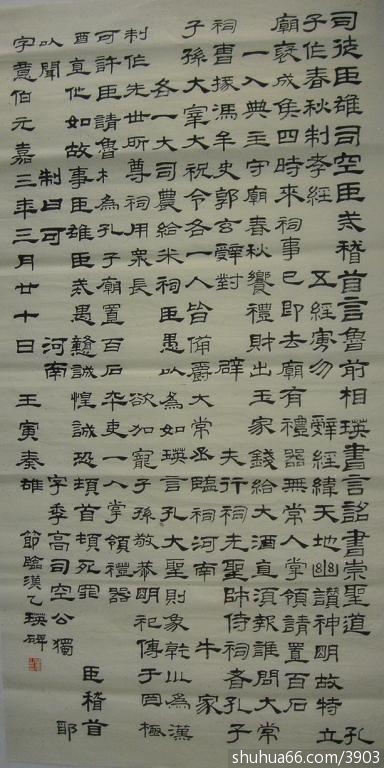 司徒臣雄司空臣戒稽首言魯前相瑛書言詔書崇聖道 孔
子作春秋制孝經 五經 勿 辭經緯天地幽讚神明故特立
廟褒成侯四時來祠事已即去廟有禮器無常人掌領請置百石
一人典主守廟春秋饗禮財出王家錢給大酒直湏報謹問大常
祠曹掾馮牟史郭玄辭對 辟 夫行祠先聖師侍祠者孔子
子孫大宰大祝令各一人皆備爵大常丞臨祠河南 牛 家
各一大司農給米祠臣愚以為如瑛言孔大聖則象乾川為漢
制作先世所尊祠用衆長 欲加寵子孫敬恭明祀傳于罔極
可許臣請魯相為孔子廟置百石卒史一人掌領禮器
酉直他如故事臣雄臣戒愚戇誠惶誠恐頓首頓死罪 臣稽首
以聞 制曰可 河南 字季高司空公 獨 耶
字意伯元嘉三年三月廿十日 王寅奏雄
節臨漢乙瑛碑
shuhua66.com/3903